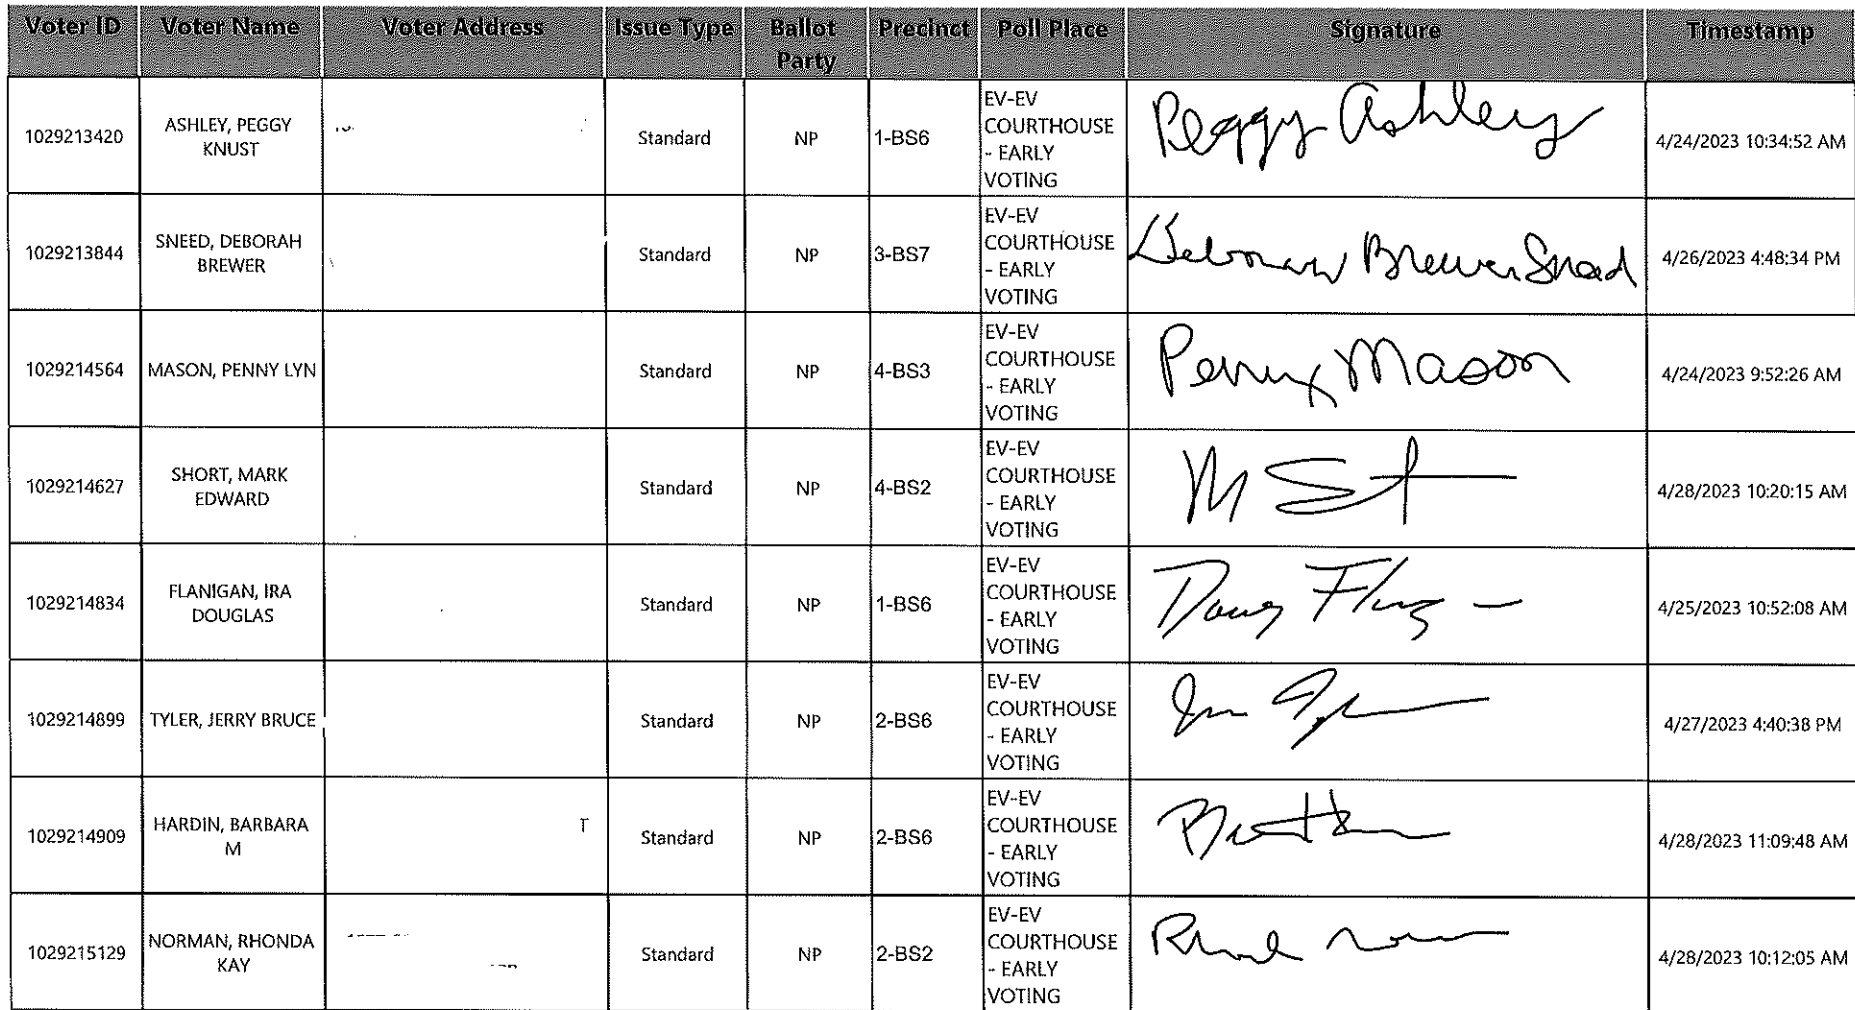 Voter ID Voter Name Voter Address Issue Type Ballot Party Precinct Poll Place Signature Timestamp
1029213420 ASHLEY, PEGGY KNUST Standard NP 1-BS6 EV-EV COURTHOUSE - EARLY VOTING Peggy Ashley 4/24/2023 10:34:52 AM
1029213844 SNEED, DEBORAH BREWER Standard NP 3-BS7 EV-EV COURTHOUSE - EARLY VOTING Deborah Brewer Sneed 4/26/2023 4:48:34 PM
1029214564 MASON, PENNY LYN Standard NP 4-BS3 EV-EV COURTHOUSE - EARLY VOTING Penny Mason 4/24/2023 9:52:26 AM
1029214627 SHORT, MARK EDWARD Standard NP 4-BS2 EV-EV COURTHOUSE - EARLY VOTING 4/28/2023 10:20:15 AM
1029214834 FLANIGAN, IRA DOUGLAS Standard NP 1-BS6 EV-EV COURTHOUSE - EARLY VOTING Doug 4/25/2023 10:52:08 AM
1029214899 TYLER, JERRY BRUCE Standard NP 2-BS6 EV-EV COURTHOUSE - EARLY VOTING 4/27/2023 4:40:38 PM
1029214909 HARDIN, BARBARA M T Standard NP 2-BS6 EV-EV COURTHOUSE - EARLY VOTING 4/28/2023 11:09:48 AM
1029215129 NORMAN, RHONDA KAY Standard NP 2-BS2 EV-EV COURTHOUSE - EARLY VOTING 4/28/2023 10:12:05 AM